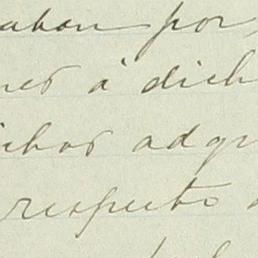 aban por
nes á dich
ichos adqu
respecto